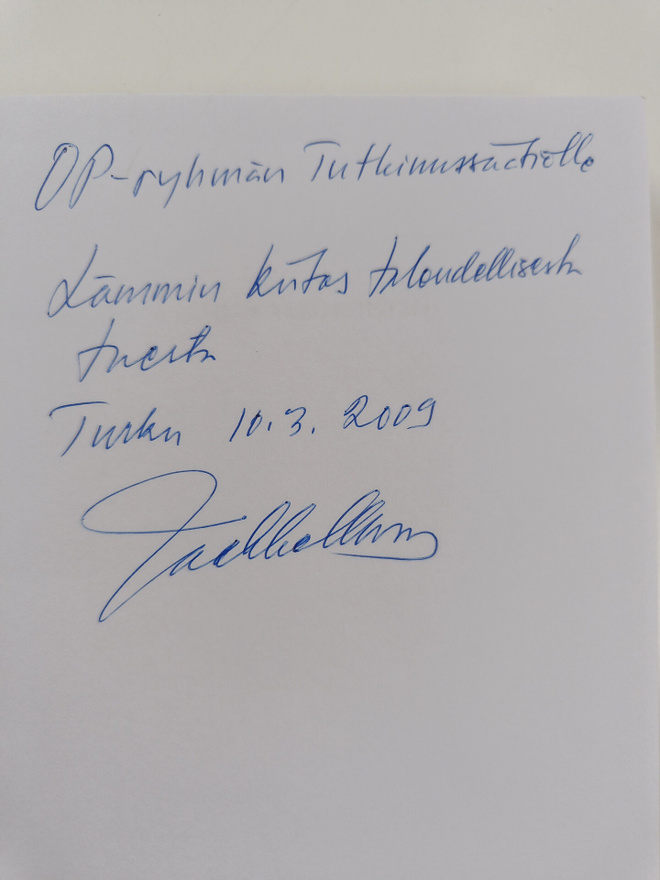 OP-ryhmän Tutkimussäätiölle
Lämmin kiitos taloudellisesta
tuesta
Turku 10.3.2009